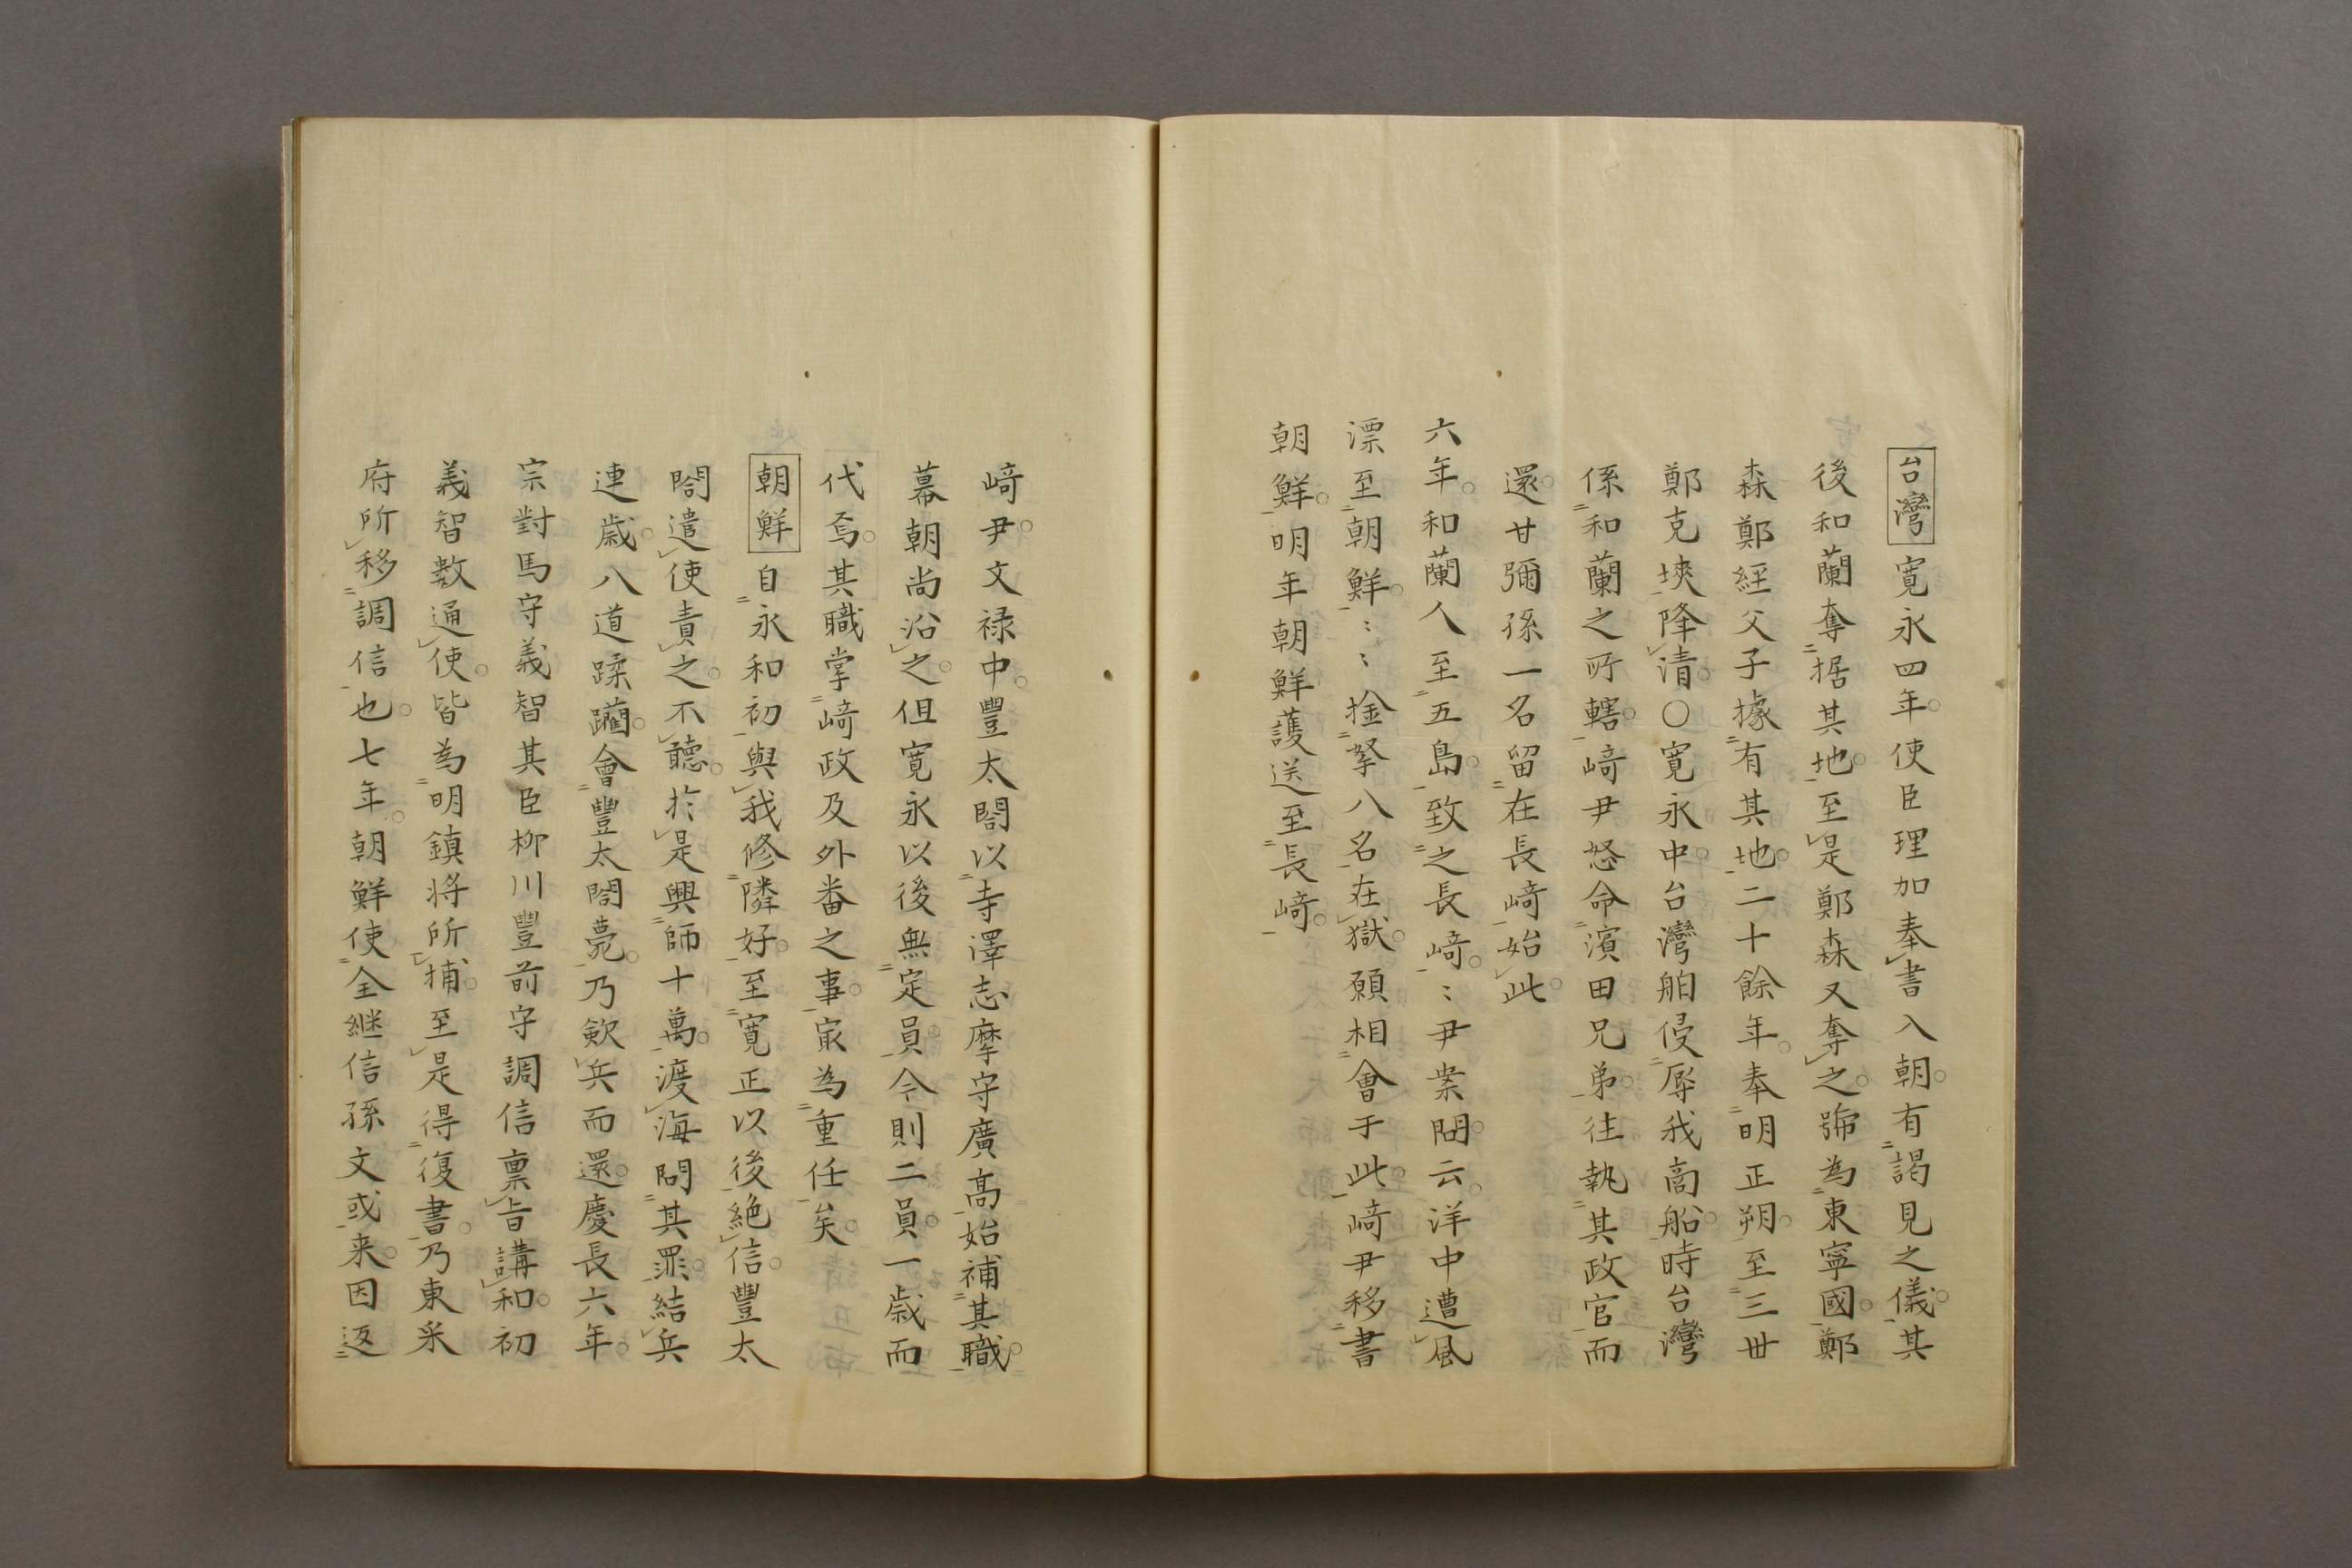 台灣寛永四年。使臣理加奉書入朝。有謁見之儀。其
後和蘭奪据其地。至是鄭森又奪之。號為東寧國。鄭
森鄭経父子據有其地。二十餘年。奉明正朔。至三世
鄭克塽降清。〇寛永中。台灣舶侵辱我商船。時台灣
係和蘭之所轄。﨑尹怒命濱田兄弟。往執其政官而
還。甘彌孫一名留在長﨑始此。
六年。和蘭人至五島。致之長﨑。〻尹案問。云。洋中遭風
漂至朝鮮。〻〻搶拏八名在獄。願相會于此。﨑尹移書
朝鮮。明年朝鮮護送至長﨑。
﨑尹。文禄中。豐太閤以寺澤志摩守廣髙始補其職。
幕朝尚沿之。但寛永以後無定員。今則二員。一歳而
代焉。其職掌﨑政及外番之事。㝡為重任矣。
朝鮮自永和初與我修隣好。至寛正以後絶信。豐太
閤遣使責之。不聽。於是興師十萬。渡海問其罪。結兵
連歳。八道蹂躙。會豐太閤薨。乃歛兵而還。慶長六年。
宗對馬守義智其臣柳川豐前守調信稟旨講和。初
義智數通使。皆為明鎮将所捕。至是得復書。乃東采
府所移調信也。七年。朝鮮使全継信孫文或来。因返